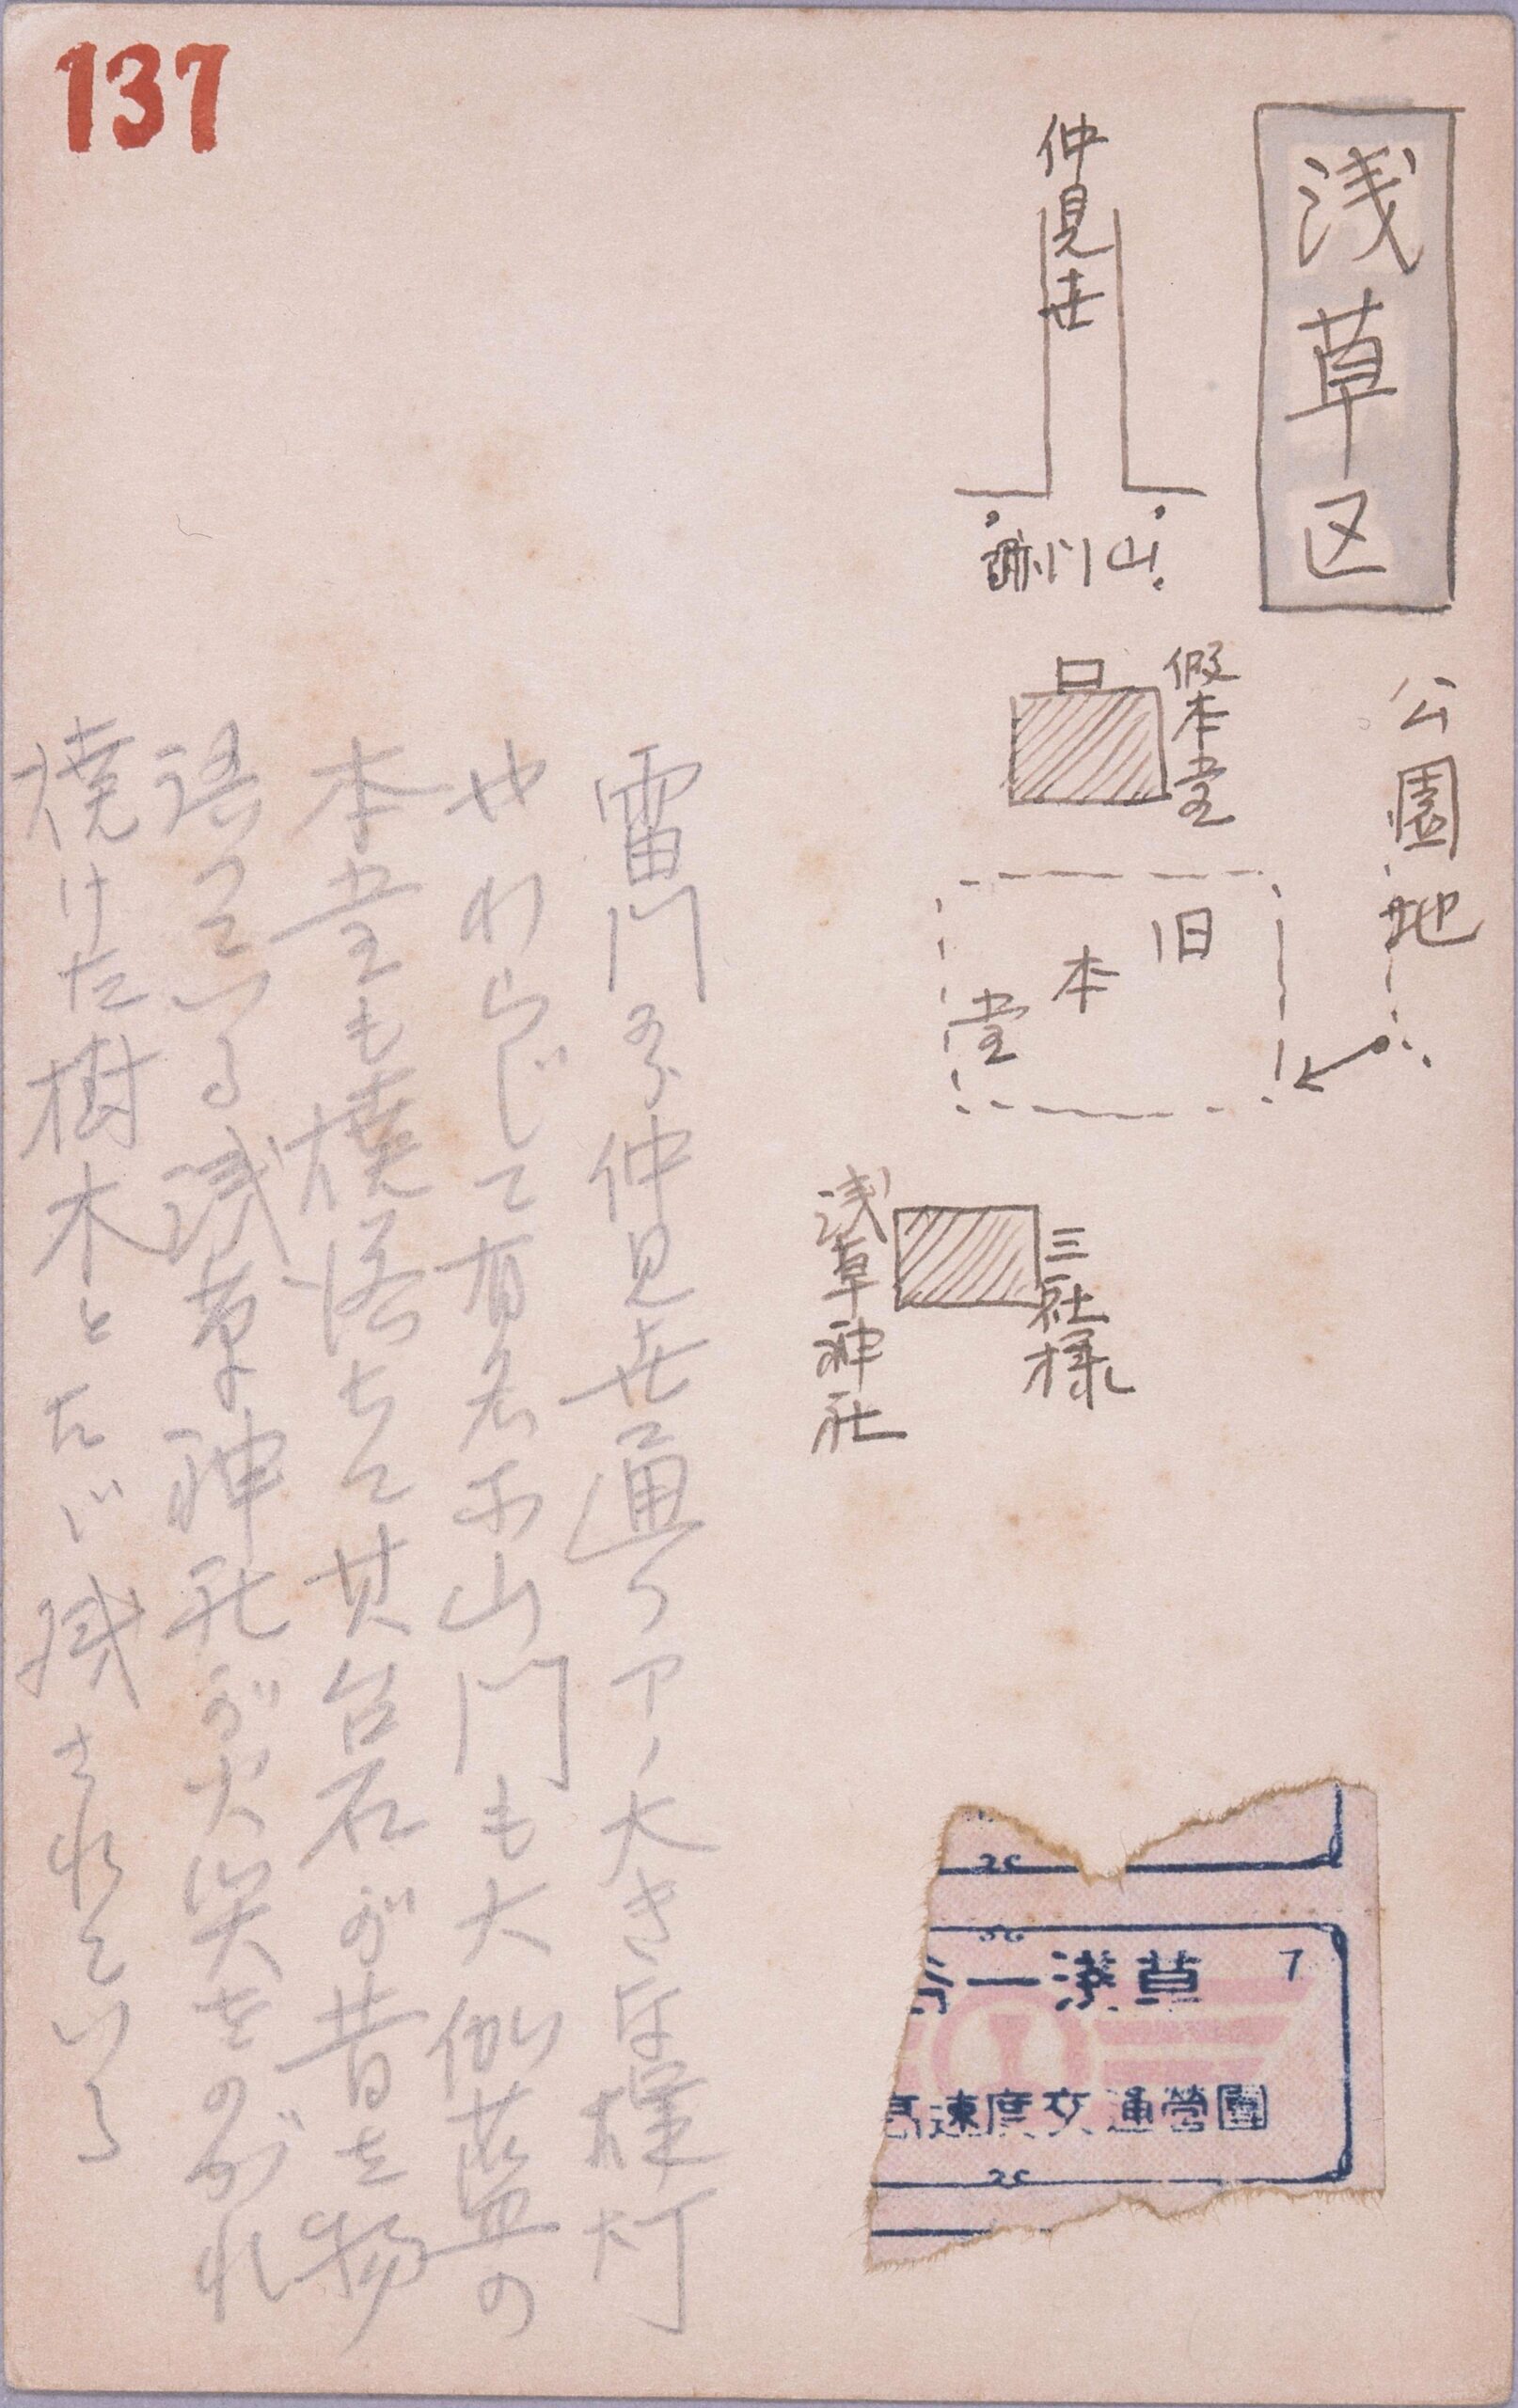 137
浅草区
公園地
仲見世
山門跡
假本堂
旧本堂
三社様
浅草神社
雷門 仲見世通り アノ大きな提灯
やわらじで有名な山門も大伽藍の
本堂も焼落ちて其台石が昔を物
語っている浅草神社が火災をのがれ
焼けた樹木とたゞ残されている
谷－淺草 7
高速度交通營團